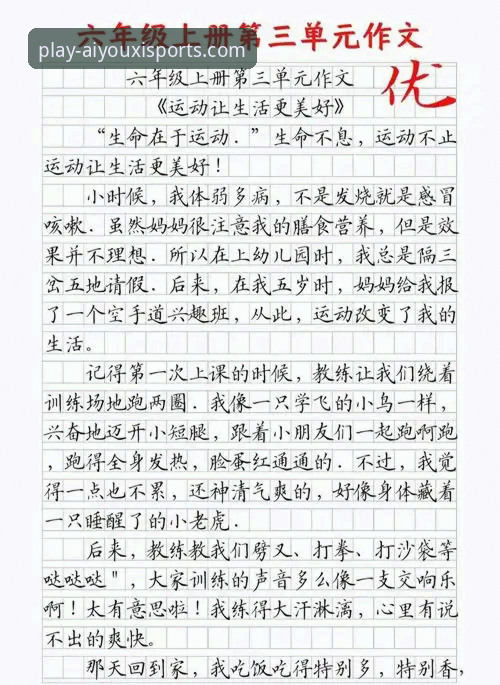 六年级上册第三单元作文
play-aiyouxisports.com
六年级上册第三单元作文
优
《运动让生活更美好》
“生命在于运动．”生命不息，运动不止
运动让生活更美好！
小时候，我体弱多病，不是发烧就是感冒
咳嗽．虽然妈妈很注意我的膳食营养，但是效
果并不理想．所以在上幼儿园时，我总是隔三
岔五地请假．后来，在我五岁时，妈妈给我报
了一个空手道兴趣班，从此，运动改变了我的
生活。
记得第一次上课的时候，教练让我们绕着
训练场地跑两圈．我像一只学飞的小鸟一样，
兴奋地迈开小短腿，跟着小朋友们一起跑啊跑
，跑得全身发热，脸蛋红通通的．不过，我觉
得一点也不累，还神清气爽的，好像身体藏着
一只睡醒了的小老虎．
后来，教练教我们劈叉、打拳、打沙袋等
哒哒哒＂，大家训练的声音多么像一支交响乐
啊！太有意思啦！我练得大汗淋漓，心里有说
不出的爽快。
那天回到家，我吃饭吃得特别多，特别香，